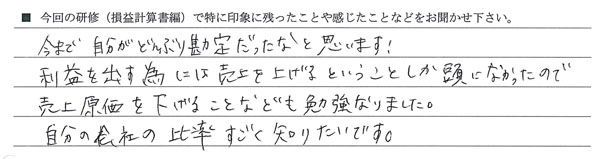 ■ 今回の研修（損益計算書編）で特に印象に残ったことや感じたことなどをお聞かせ下さい。
今まで自分がどんぶり勘定だったなと思います！
利益を出す為には売上を上げるということしか頭になかったので
売上原価を下げることなども勉強なりました。
自分の会社の比率すごく知りたいです。